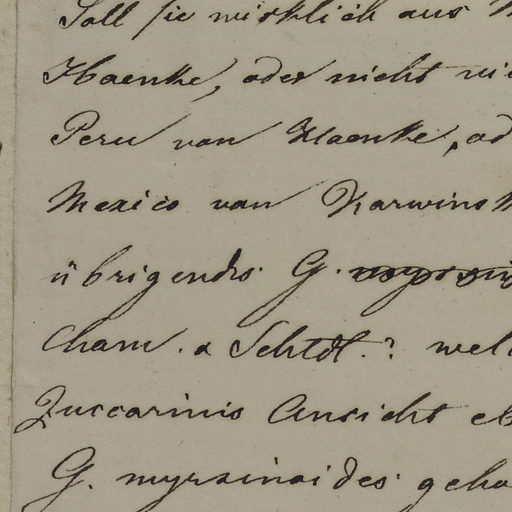 Soll sie wirklich aus
Haenke, oder nicht
Peru von Haenke, od
Mexico von Karwinsk
übrigends. G.
Cham. a Schtdl.? wel
Zuccarinis Ansicht
G. myrsinoides geho